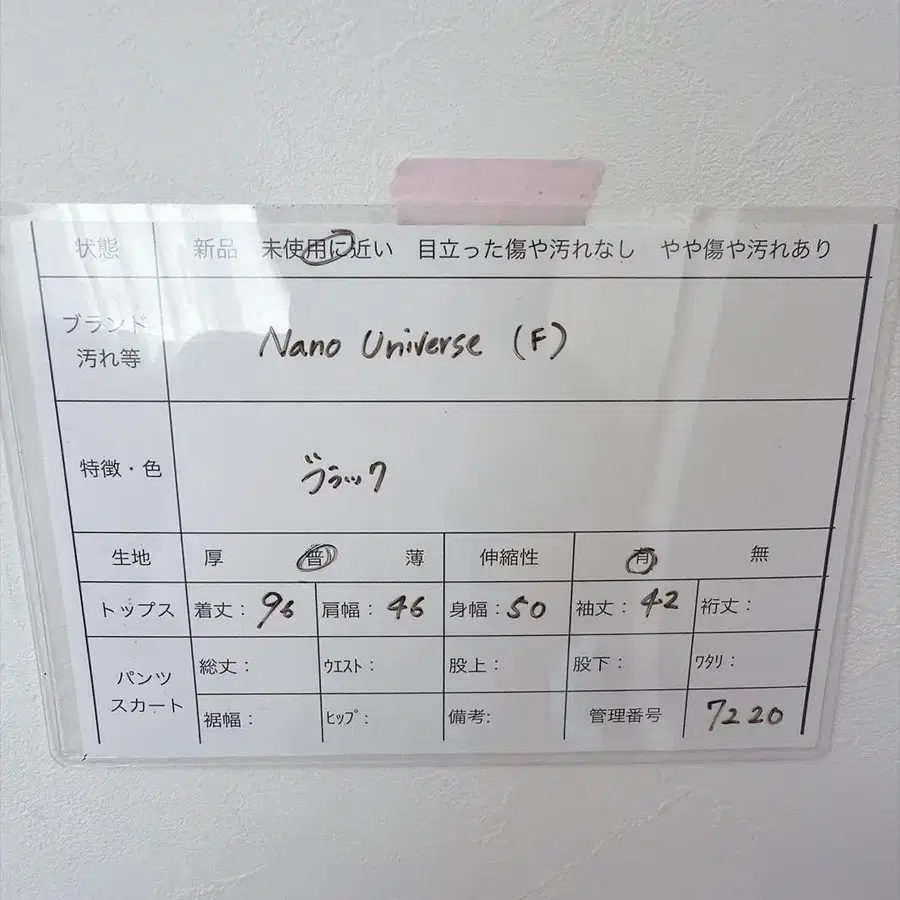 状態 新品 未使用に近い 目立った傷や汚れなし やや傷や汚れあり
ブランド
汚れ等
Nano Universe (F)
特徴・色 ブラック
生地 厚 普 薄 伸縮性 有 無
トップス 着丈：96 肩幅：46 身幅：50 袖丈：42 裄丈：
パンツ
スカート
総丈： ｳｴｽﾄ： 股上： 股下： ﾜﾀﾘ：
裾幅： ﾋｯﾌﾟ： 備考: 管理番号 7220